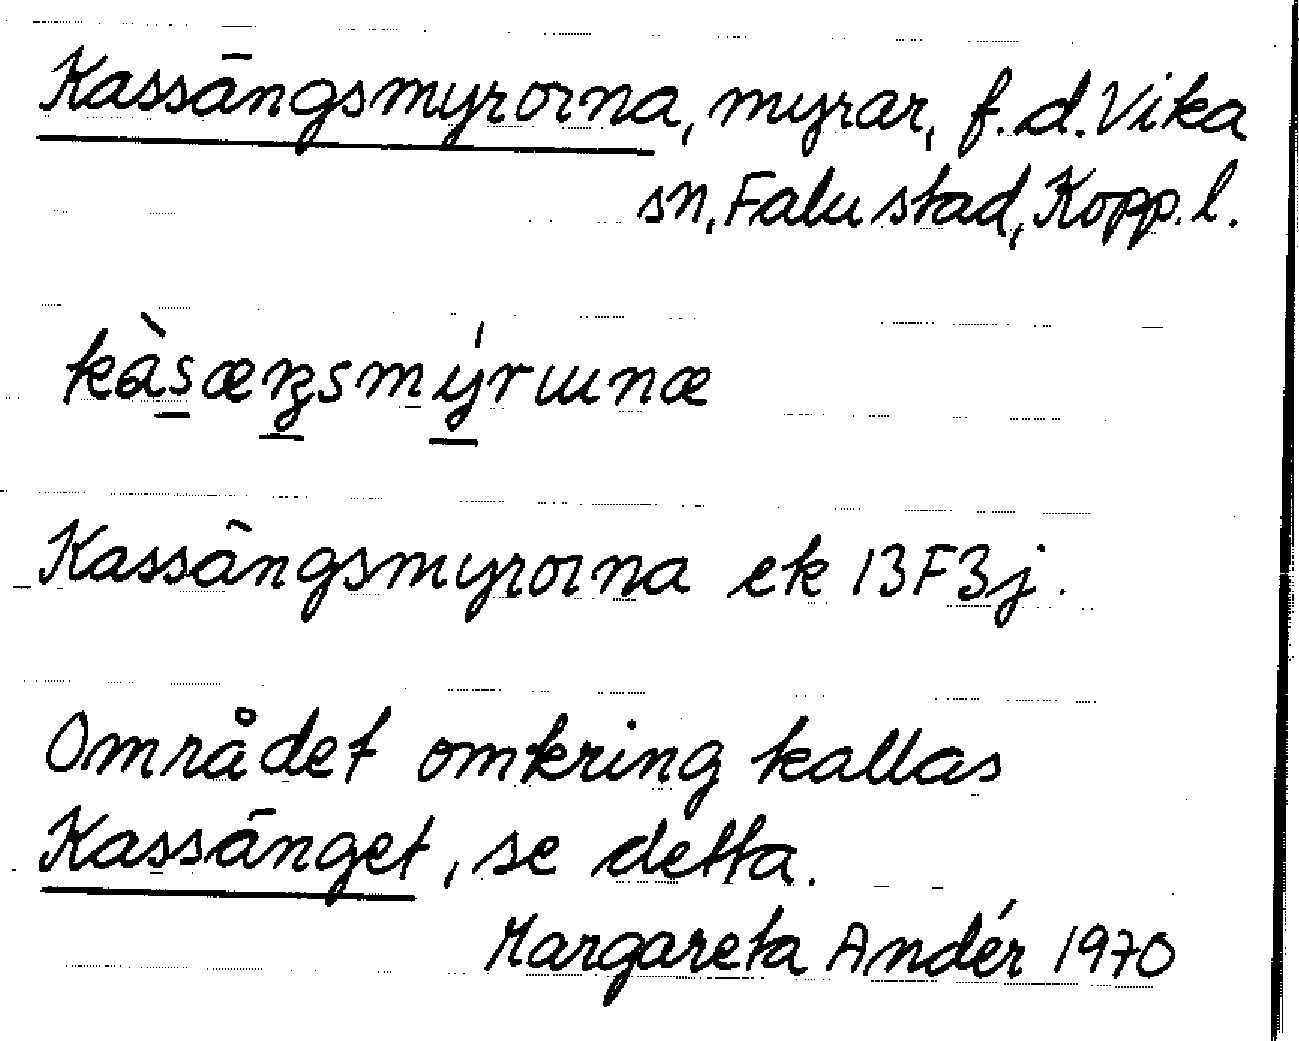 Kassängsmyrorna, myrar, f.d. Vika
sn, Falu stad, Kopp. l.
kàsæŋsmýrɯnæ
Kassängsmyrorna ek 13F3j.
Området omkring kallas
Kassänget, se detta.
Margareta Andér 1970